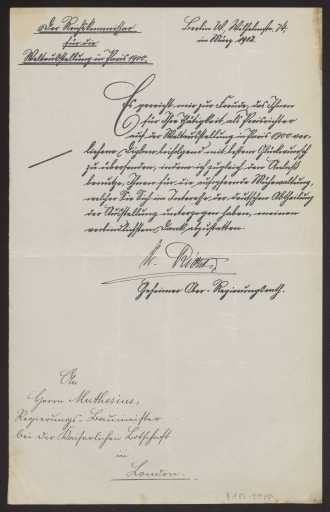 Der Reichskommissar
für die
Weltausstellung in Paris 1900.
Berlin W. Wilhelmstr. 74,
im März 1902.
Es gereicht mir zur Freude, das Ihnen
für Ihre Thätigkeit als Preisrichter
auf der Weltausstellung in Paris 1900 ver-
liehene Diplom beifolgend mit bestem Glückwunsch
zu übersenden, indem ich zugleich den Anlaß
benutze, Ihnen für die aufopfernde Mühewaltung,
welcher Sie Sich im Interesse der deutschen Abtheilung
der Ausstellung unterzogen haben, meinen
verbindlichsten Dank abzustatten.
Geheimer Ober-Regierungsrath.
An
Herrn Muthesius,
Regierungs-Baumeister
bei der Kaiserlichen Botschaft
in
London.